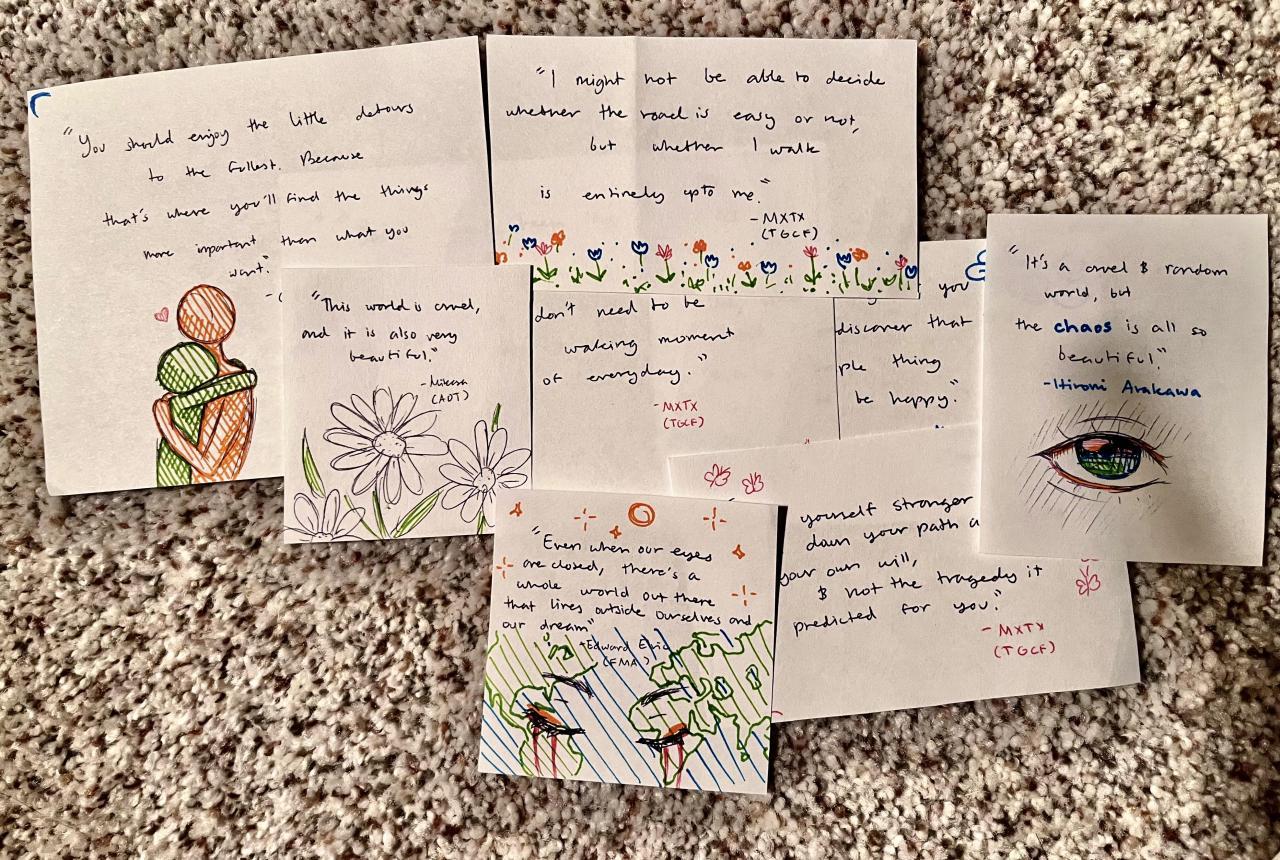 "You should enjoy the little detours
to the fullest. Because
that's where you'll find the things
more important than what you
want."
"I might not be able to decide
whether the road is easy or not,
but whether I walk
is entirely upto me."
- MXTX
(TGCF)
"This world is cruel,
and it is also very
beautiful."
- Mikasa
(AOT)
don't need to be
waking moment
of everyday."
- MXTX
(TGCF)
you
discover that
ple thing
be happy."
"It's a cruel & random
world, but
the chaos is all so
beautiful."
- Hiromi Arakawa
yourself stronger
down your path a
your own will,
& not the tragedy it
predicted for you."
- MXTX
(TGCF)
"Even when our eyes
are closed, there's a
whole world out there
that lives outside ourselves and
our dream"
- Edward Elric
(FMA)